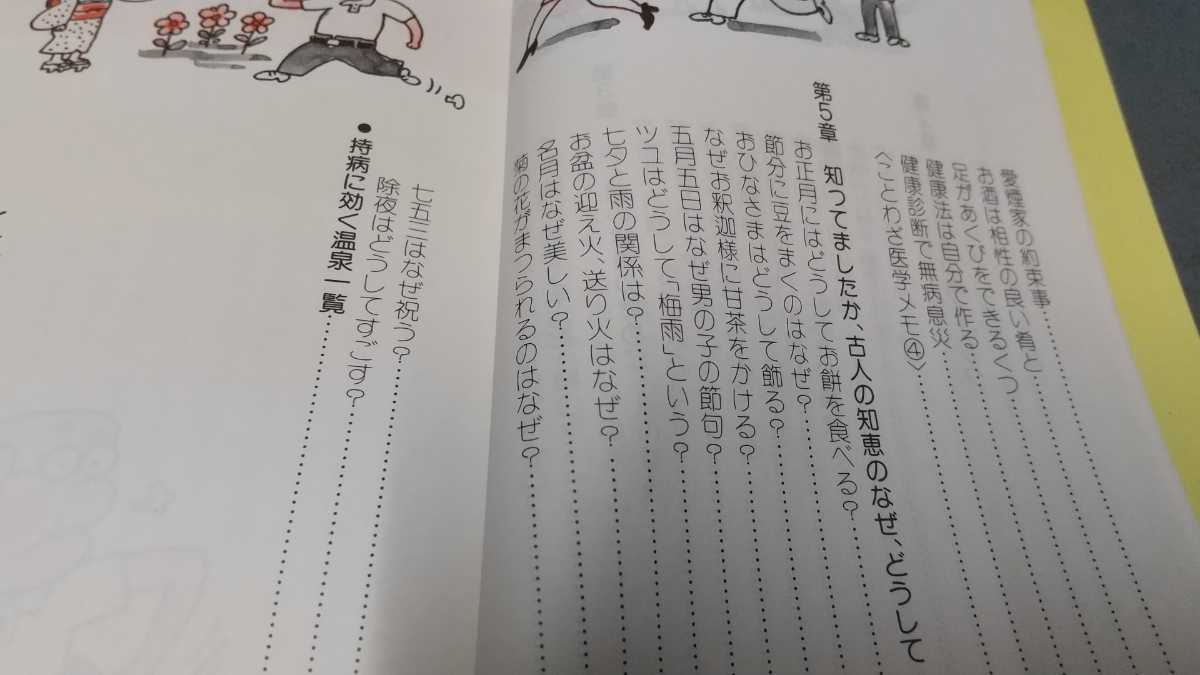 愛煙家の約束事
お酒は相性の良い肴と
足があくびをできるくつ
健康法は自分で作る
健康診断で無病息災
〈ことわざ医学メモ④〉
第5章 知ってましたか、古人の知恵のなぜ、どうして
お正月にはどうしてお餅を食べる?
節分に豆をまくのはなぜ?
おひなさまはどうして飾る?
なぜお釈迦様に甘茶をかける?
五月五日はなぜ男の子の節句?
ツユはどうして「梅雨」という?
七夕と雨の関係は?
お盆の迎え火、送り火はなぜ?
名月はなぜ美しい?
菊の花がまつられるのはなぜ?
七五三はなぜ祝う?
除夜はどうしてすごす?
●持病に効く温泉一覧